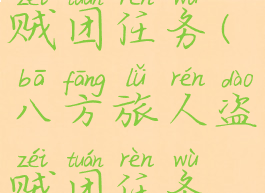 zéi tuán rèn wù
贼团任务(
bā fāng lǚ rén dào
八方旅人盗
zéi tuán rèn wù
贼团任务